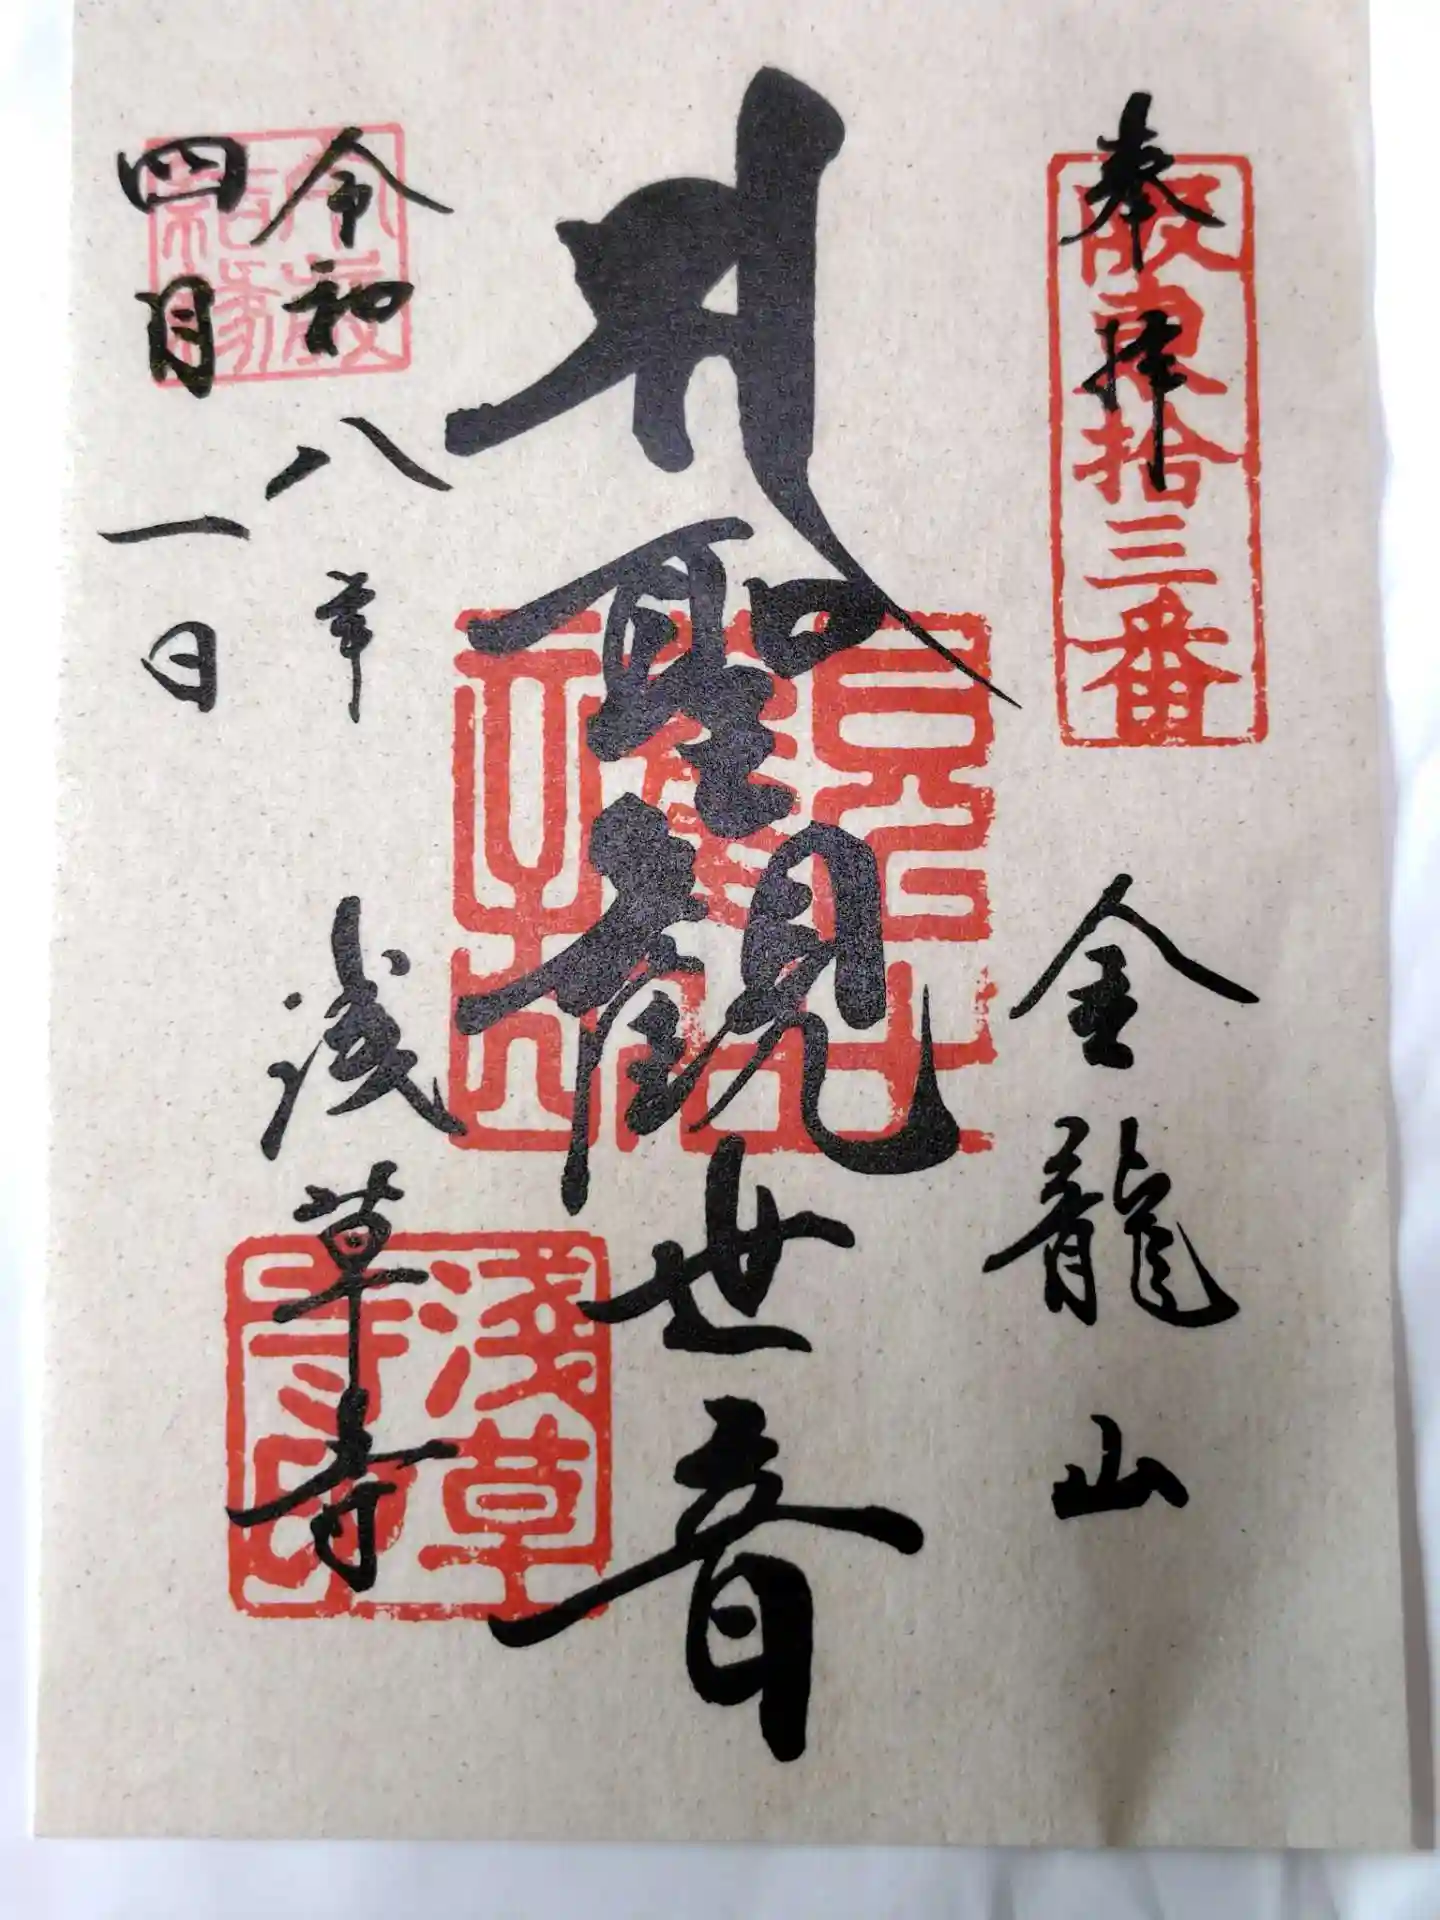 奉拝
坂東拾三番
金龍山
聖観世音
令和八年
四月一日
浅草寺
淺草寺印